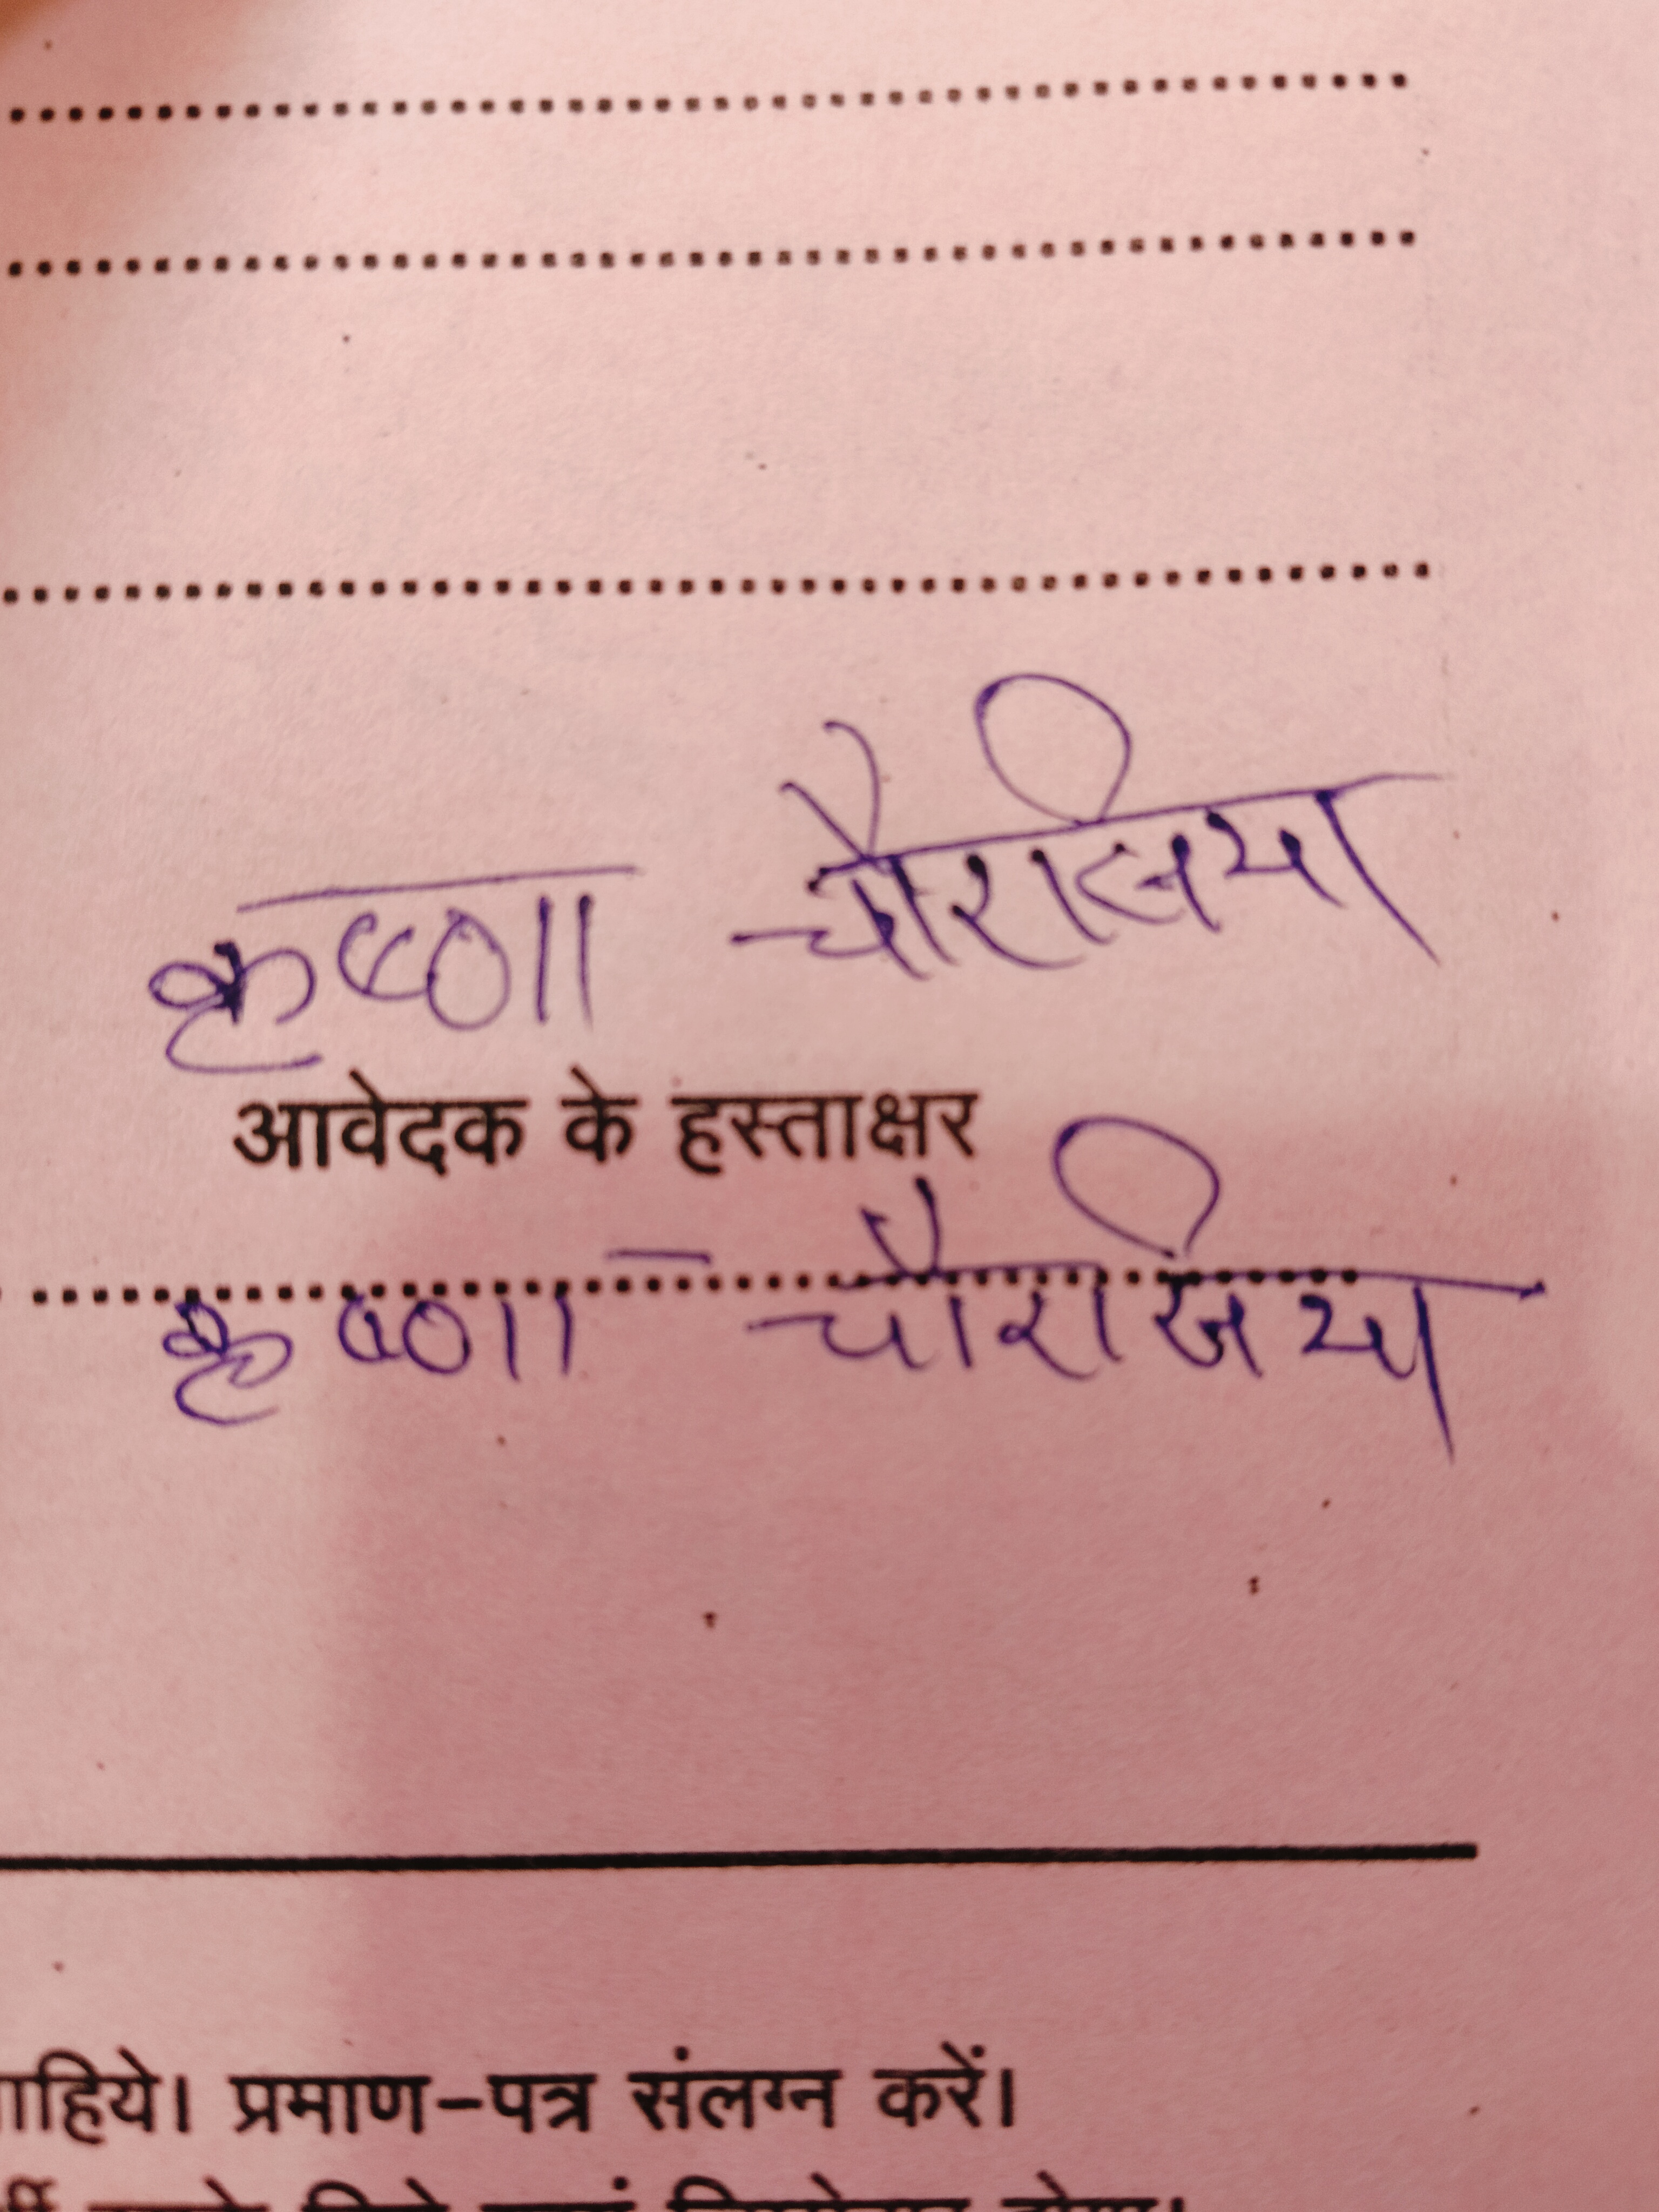 कृष्णा चौरसिया
आवेदक के हस्ताक्षर
कृष्णा चौरसिया
ाहिये। प्रमाण-पत्र संलग्न करें।